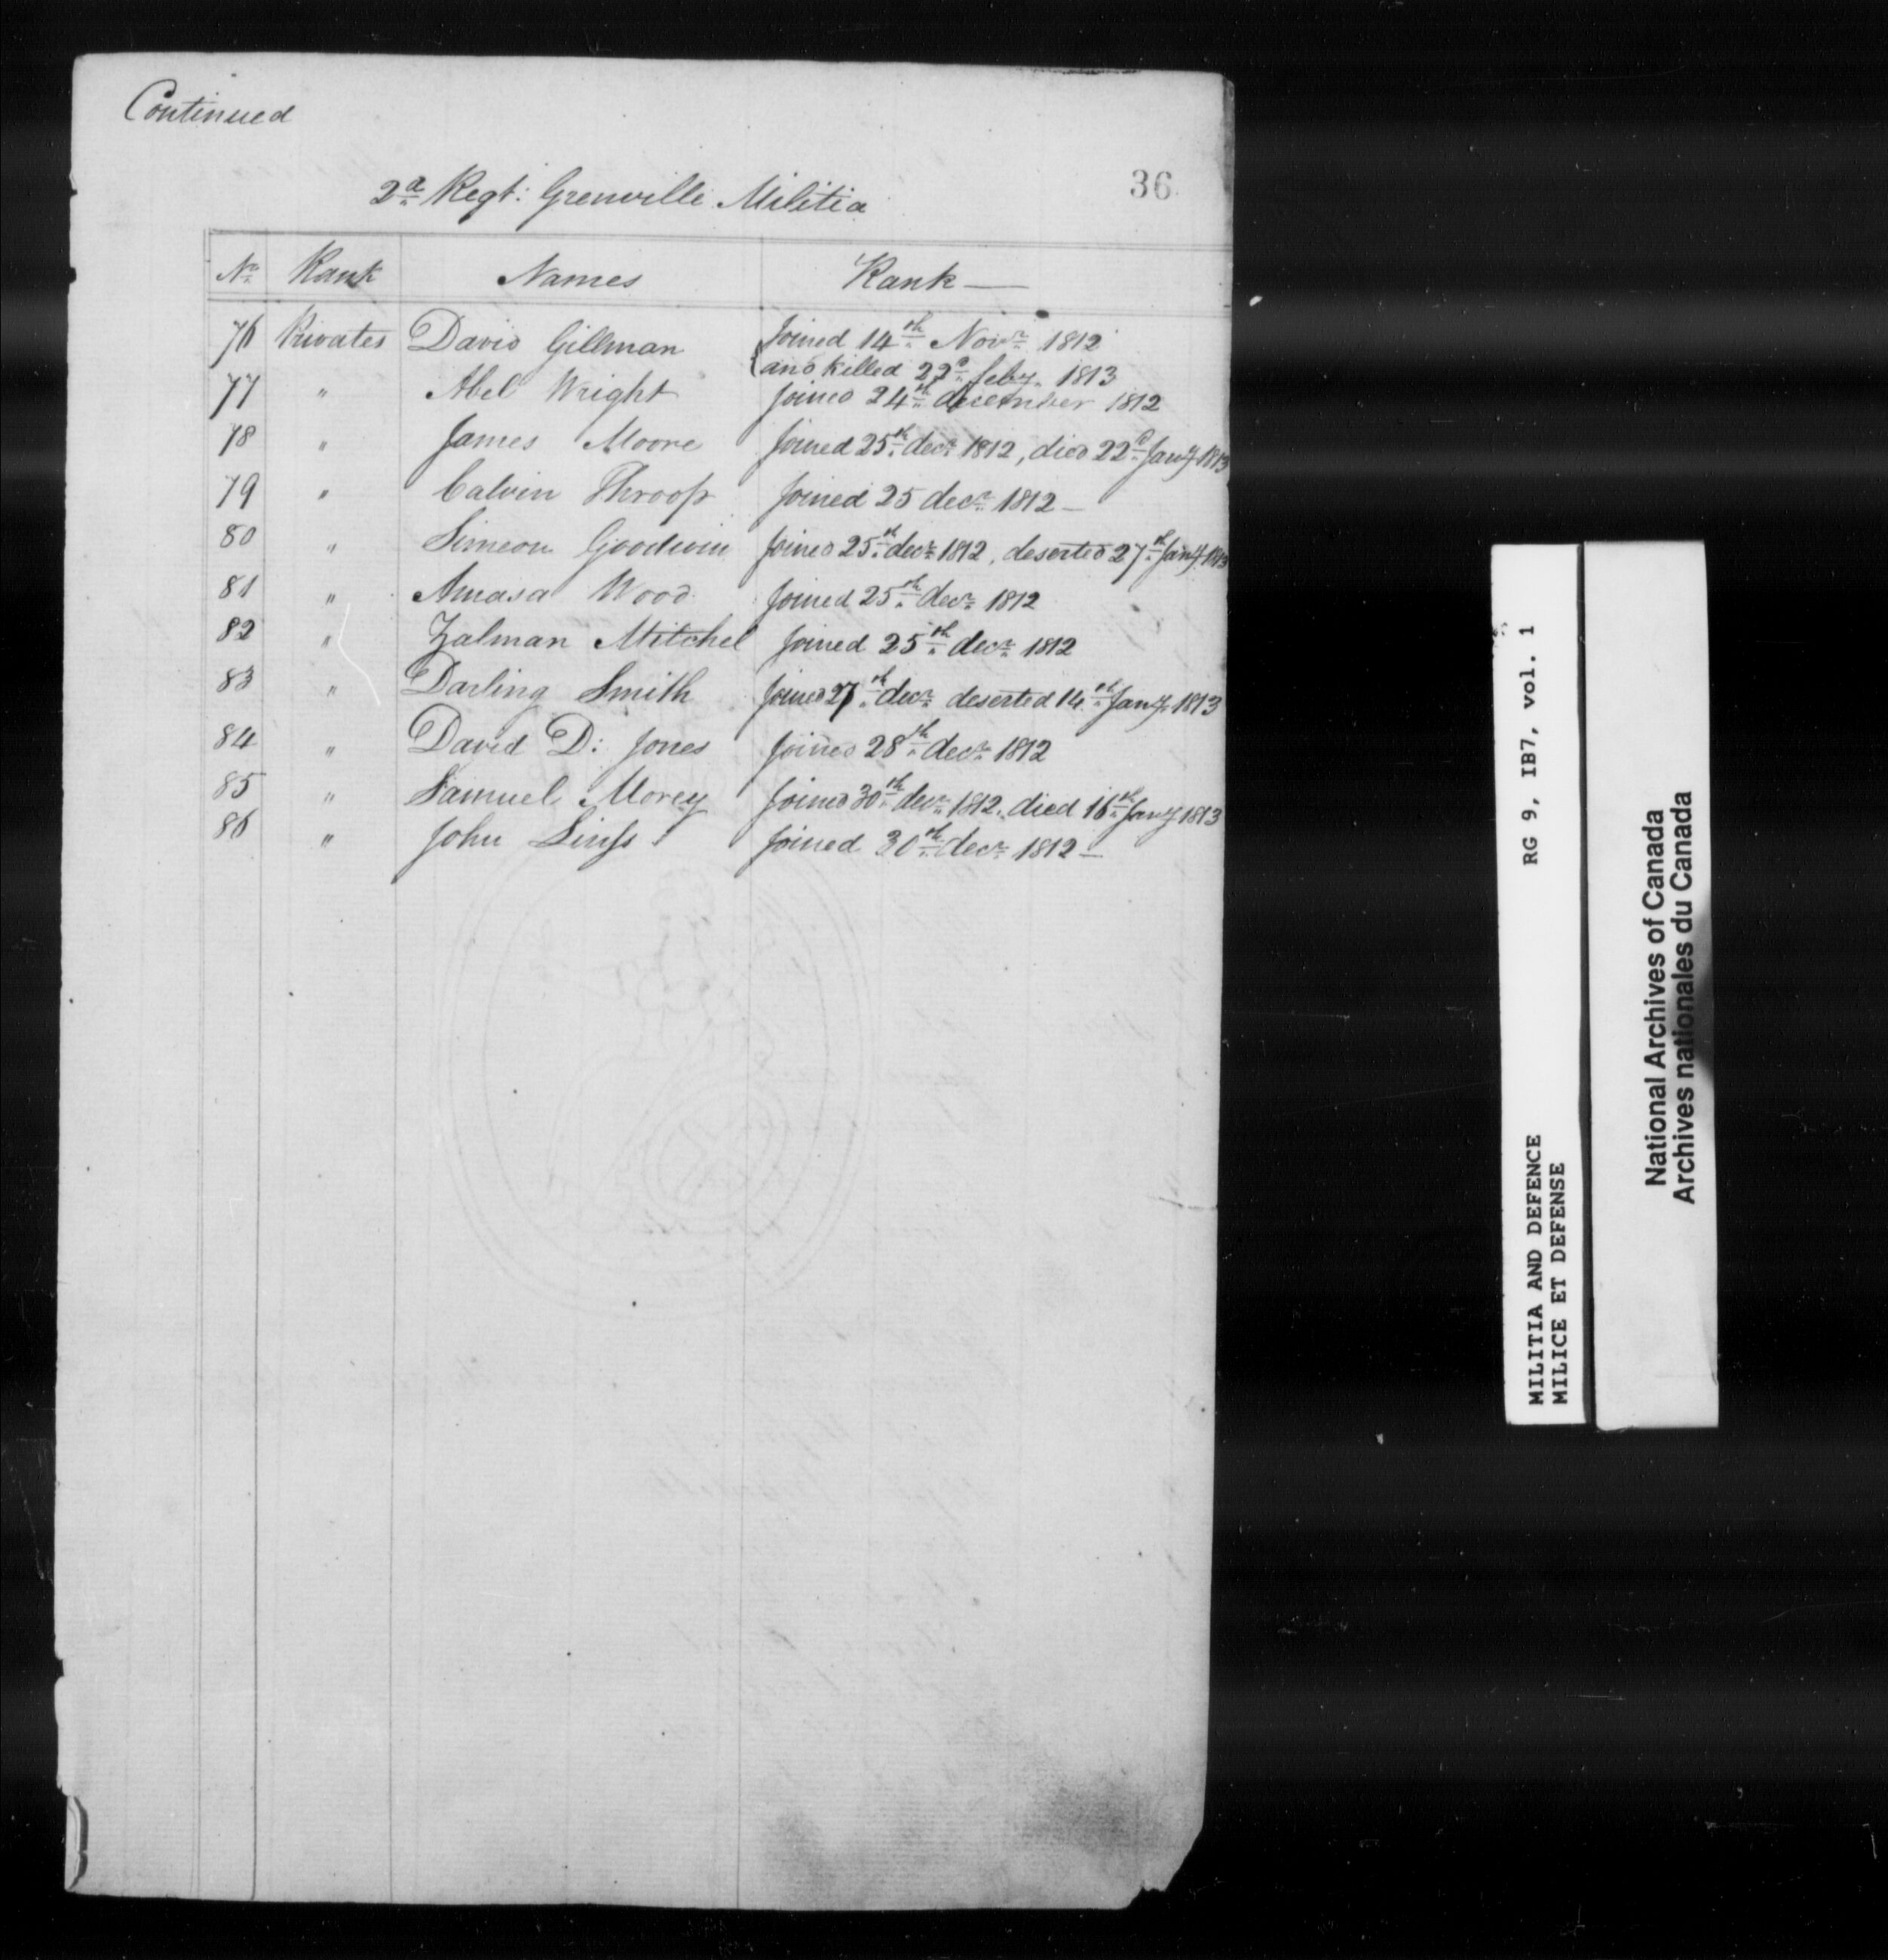 Continued
36
2d Regt: Grenville Militia
No Rank Names Rank —
76 Privates David Gillman Joined 14th Novr 1812
and killed 22d feby 1813
77 " Abel Wright Joined 24th december 1812
78 " James Moore Joined 25th decr 1812, died 22d Jany 1813
79 " Calvin Throop Joined 25 decr 1812 —
80 " Simeon Goodwin Joined 25th decr 1812, deserted 27th Jany 1813
81 " Amasa Wood Joined 25th decr 1812
82 " Zalman Mitchel Joined 25th decr 1812
83 " Darling Smith Joined 27th decr deserted 14th Jany 1813
84 " David D: Jones Joined 28th decr 1812
85 " Samuel Morey Joined 30th decr 1812, died 16th Jany 1813
86 " John Joined 30th decr 1812 —
MILITIA AND DEFENCE RG 9, IB7, vol. 1
MILICE ET DEFENSE
National Archives of Canada
Archives nationales du Canada